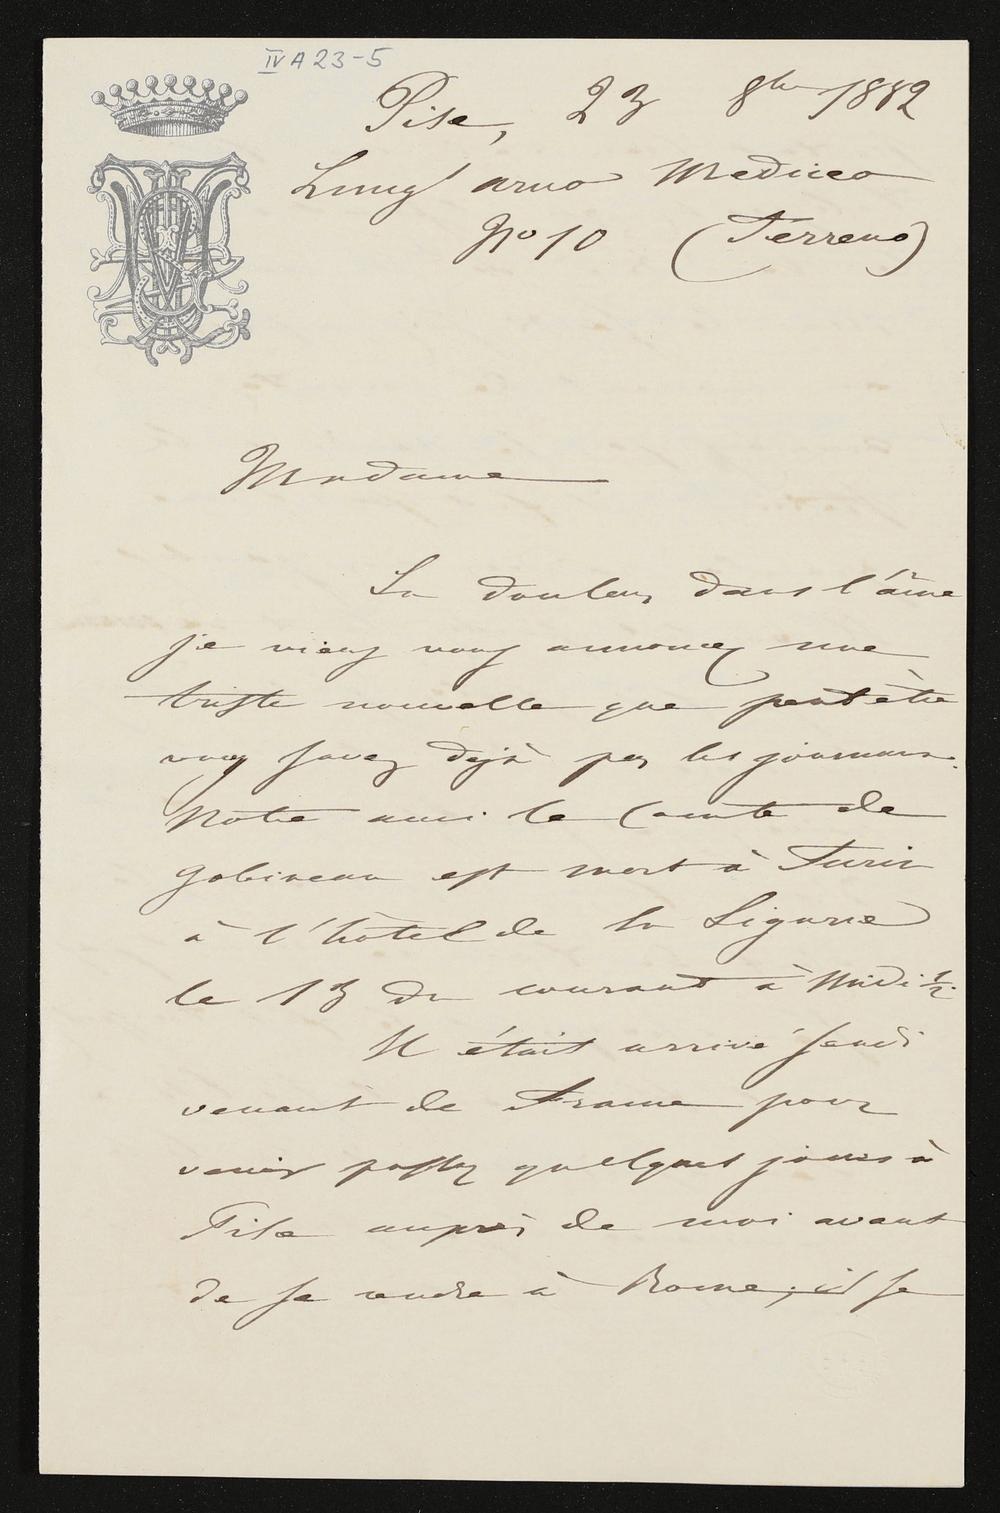 IV A 23-5
Pise, 23 8bre 1882
Lung' arno Mediceo
No 10 (Terreno)
Madame
La douleur dans l'âme
je viens vous annoncer une
triste nouvelle que peut être
vous savez déjà par les journaux.
Notre ami le Comte de
Gobineau est mort à Turin
à l'hôtel de la Ligurie
le 13 du courant à midi ½.
Il était arrivé Jeudi
venant de France pour
venir passer quelques jours à
Pise auprès de moi avant
de se rendre à Rome; il se